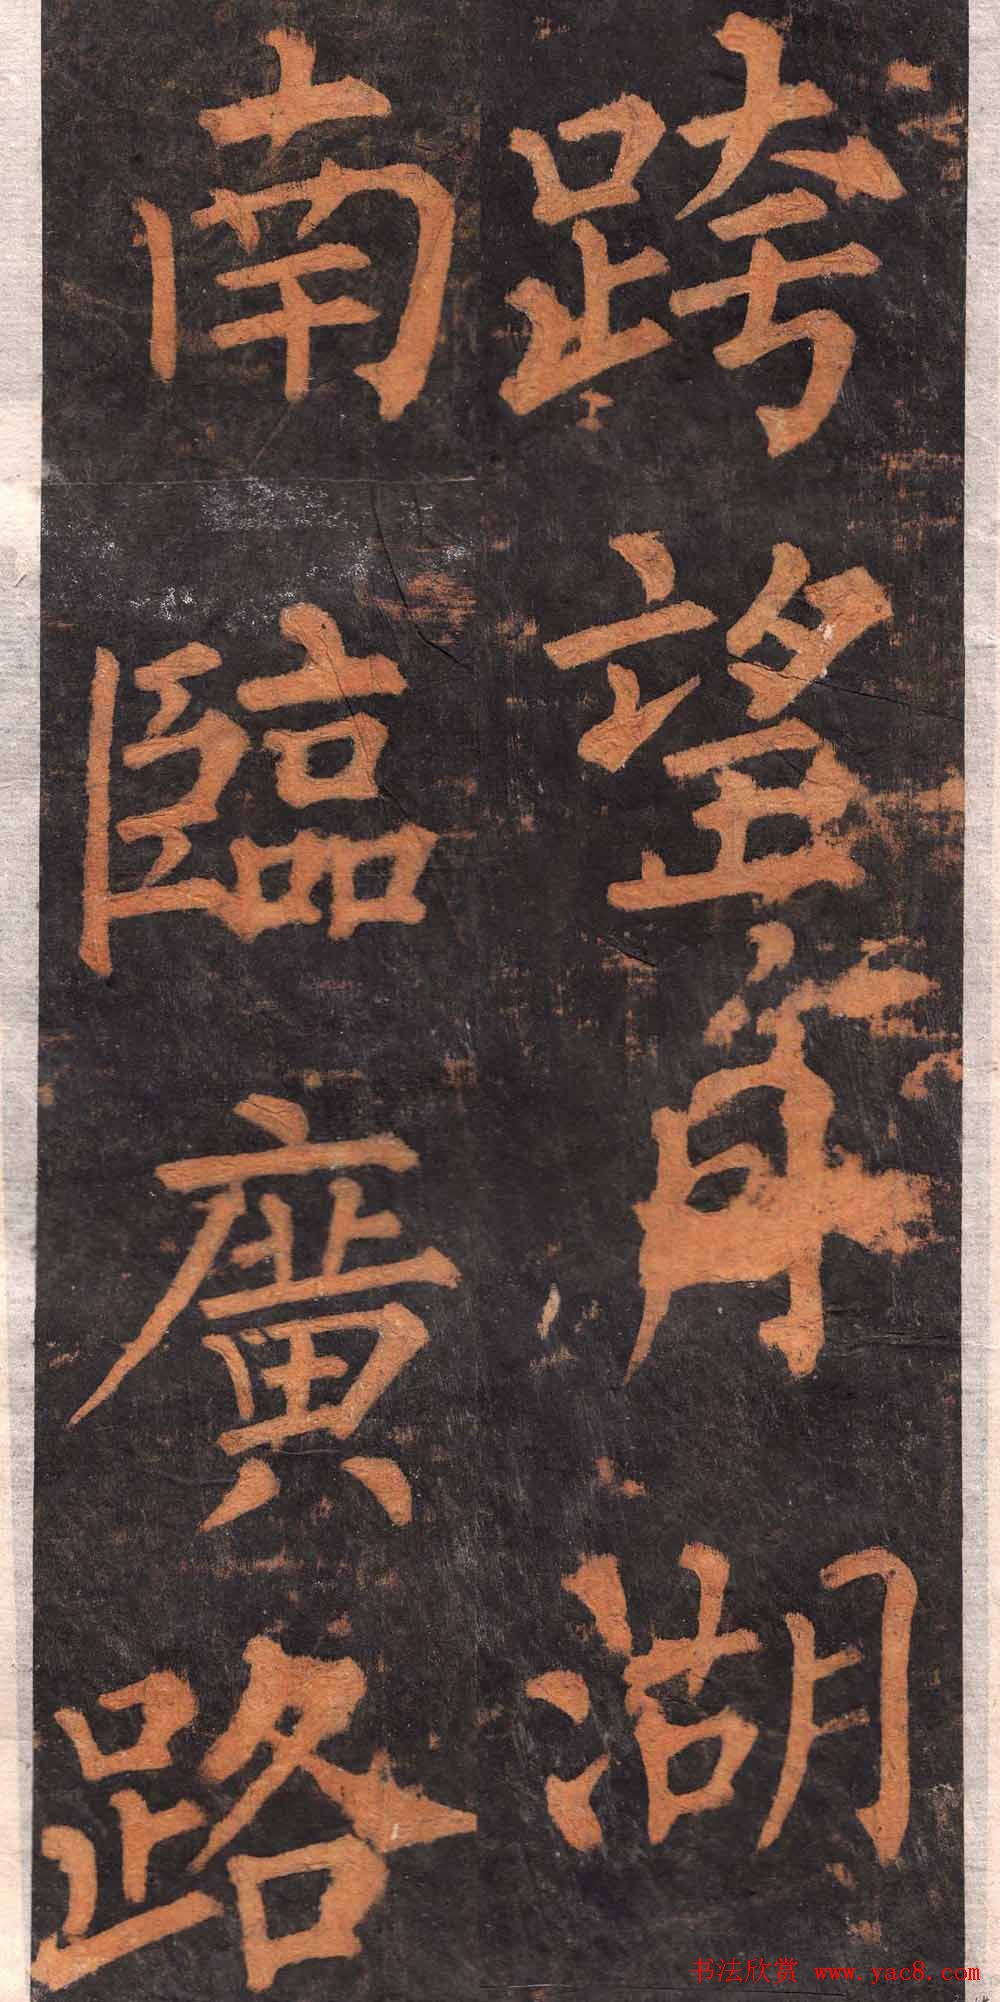 跨望湖
南臨廣路
书法欣赏 www.yac8.com